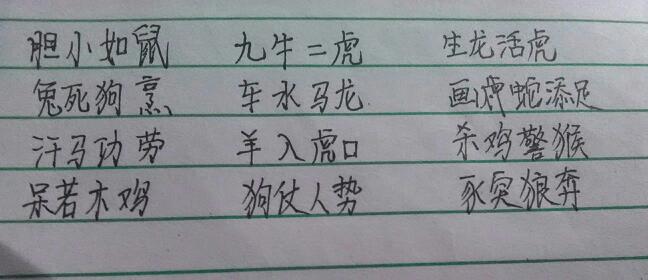 胆小如鼠 九牛二虎 生龙活虎
兔死狗烹 车水马龙 画虎蛇添足
汗马功劳 羊入虎口 杀鸡警猴
呆若木鸡 狗仗人势 豕突狼奔